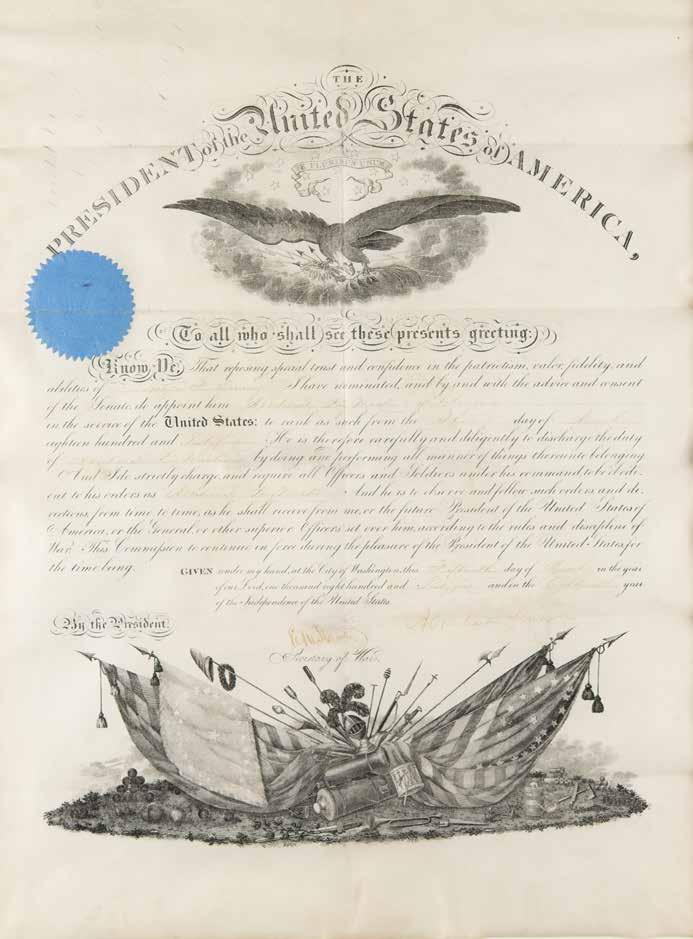 THE
PRESIDENT of the United States of AMERICA,
E PLURIBUS UNUM
To all who shall see these presents greeting:
Know Ye, That reposing special trust and confidence in the patriotism, valor, fidelity, and
abilities of I have nominated, and by and with the advice and consent
of the Senate, do appoint him
in the service of the United States: to rank as such from the day of
eighteen hundred and He is therefore carefully and diligently to discharge the duty
of by doing and performing all manner of things thereunto belonging
And I do strictly charge, and require all Officers and Soldiers under his command to be obedi-
ent to his orders as And he is to observe and follow such orders and di-
rections from time to time, as he shall receive from me, or the future President of the United States of
America, or the General, or other superior Officers set over him, according to the rules and discipline of
War. This Commission to continue in force during the pleasure of the President of the United States, for
the time being.
GIVEN under my hand, at the City of Washington, this day of in the year
of our Lord, one thousand eight hundred and and in the year
of the Independence of the United States.
By the President
Secretary of War.